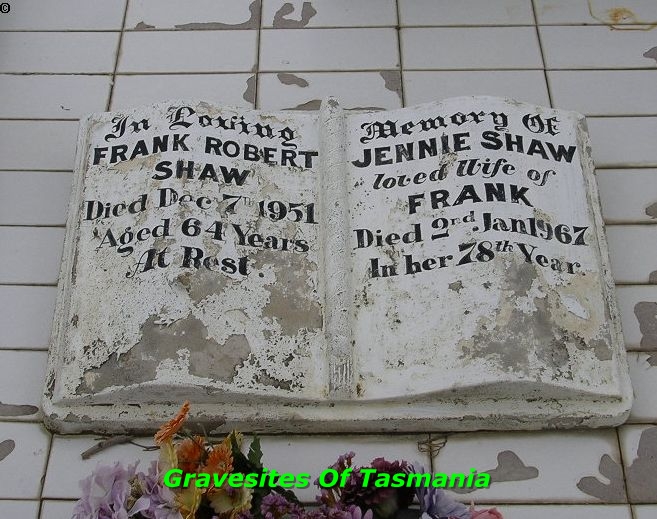 ©
In Loving
FRANK ROBERT
SHAW
Died Dec 7th 1951
Aged 64 Years
At Rest.
Memory Of
JENNIE SHAW
loved Wife of
FRANK
Died 2nd Jan 1967
In her 78th Year
Gravesites Of Tasmania